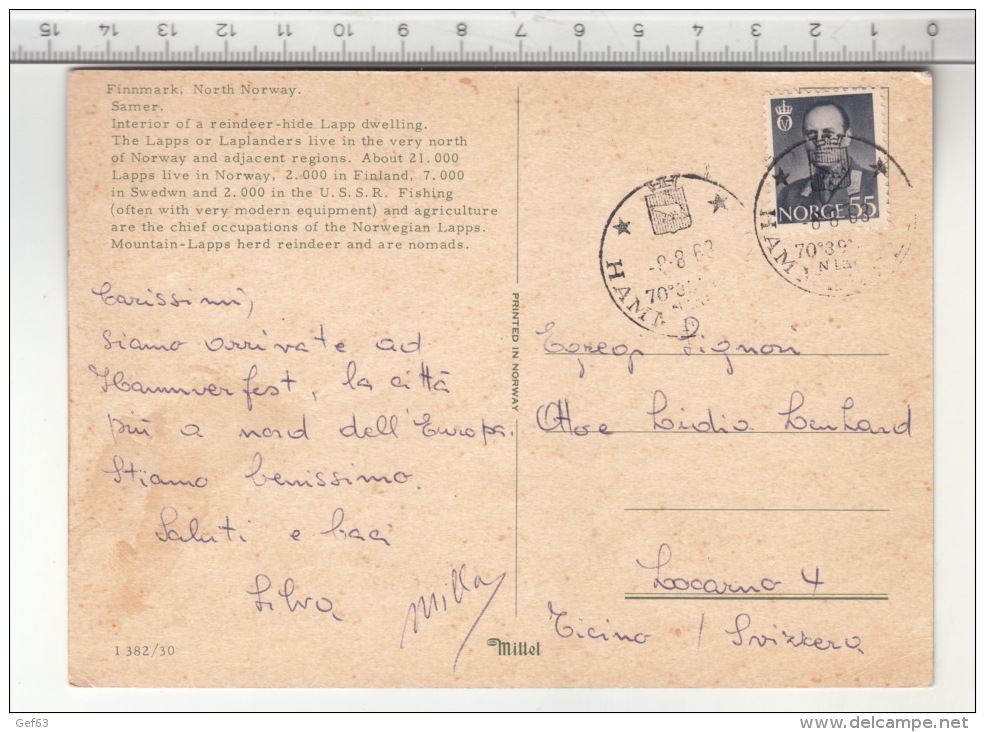 15 14 13 12 11 10 9 8 7 6 5 4 3 2 1 0
Finnmark, North Norway.
Samer.
Interior of a reindeer-hide Lapp dwelling.
The Lapps or Laplanders live in the very north
of Norway and adjacent regions. About 21.000
Lapps live in Norway, 2.000 in Finland, 7.000
in Swedwn and 2.000 in the U.S.S.R. Fishing
(often with very modern equipment) and agriculture
are the chief occupations of the Norwegian Lapps.
Mountain-Lapps herd reindeer and are nomads.
Carissimi,
siamo arrivate ad
Hammerfest, la città
più a nord dell'Europa.
Stiamo benissimo.
Saluti e baci
Silva Milla
1 382/30
PRINTED IN NORWAY
Mittet
NORGE 55
-8-8 63
-8-8 63
Egregi Signori
Otto e Lidia Lenhard
Locarno 4
Ticino / Svizzera
Gef63
www.delcampe.net